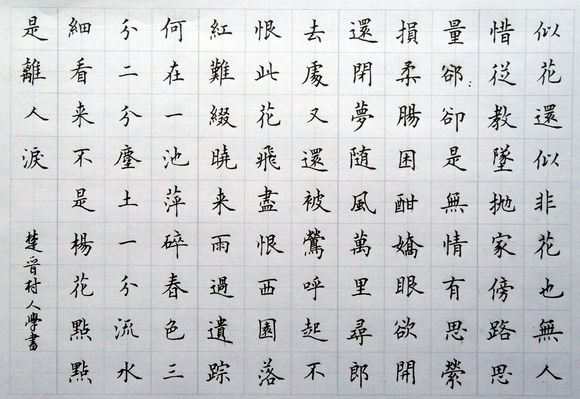 似花還似非花也無人
惜從教墜抛家傍路思
量郤卻是無情有思縈
損柔腸困酣嬌眼欲開
還閉夢随風萬里尋郎
去處又還被鶯呼起不
恨此花飛盡恨西園落
紅難綴曉来雨過遺踪
何在一池萍碎春色三
分二分塵土一分流水
細看来不是楊花點點
是離人淚
楚晉村人學書